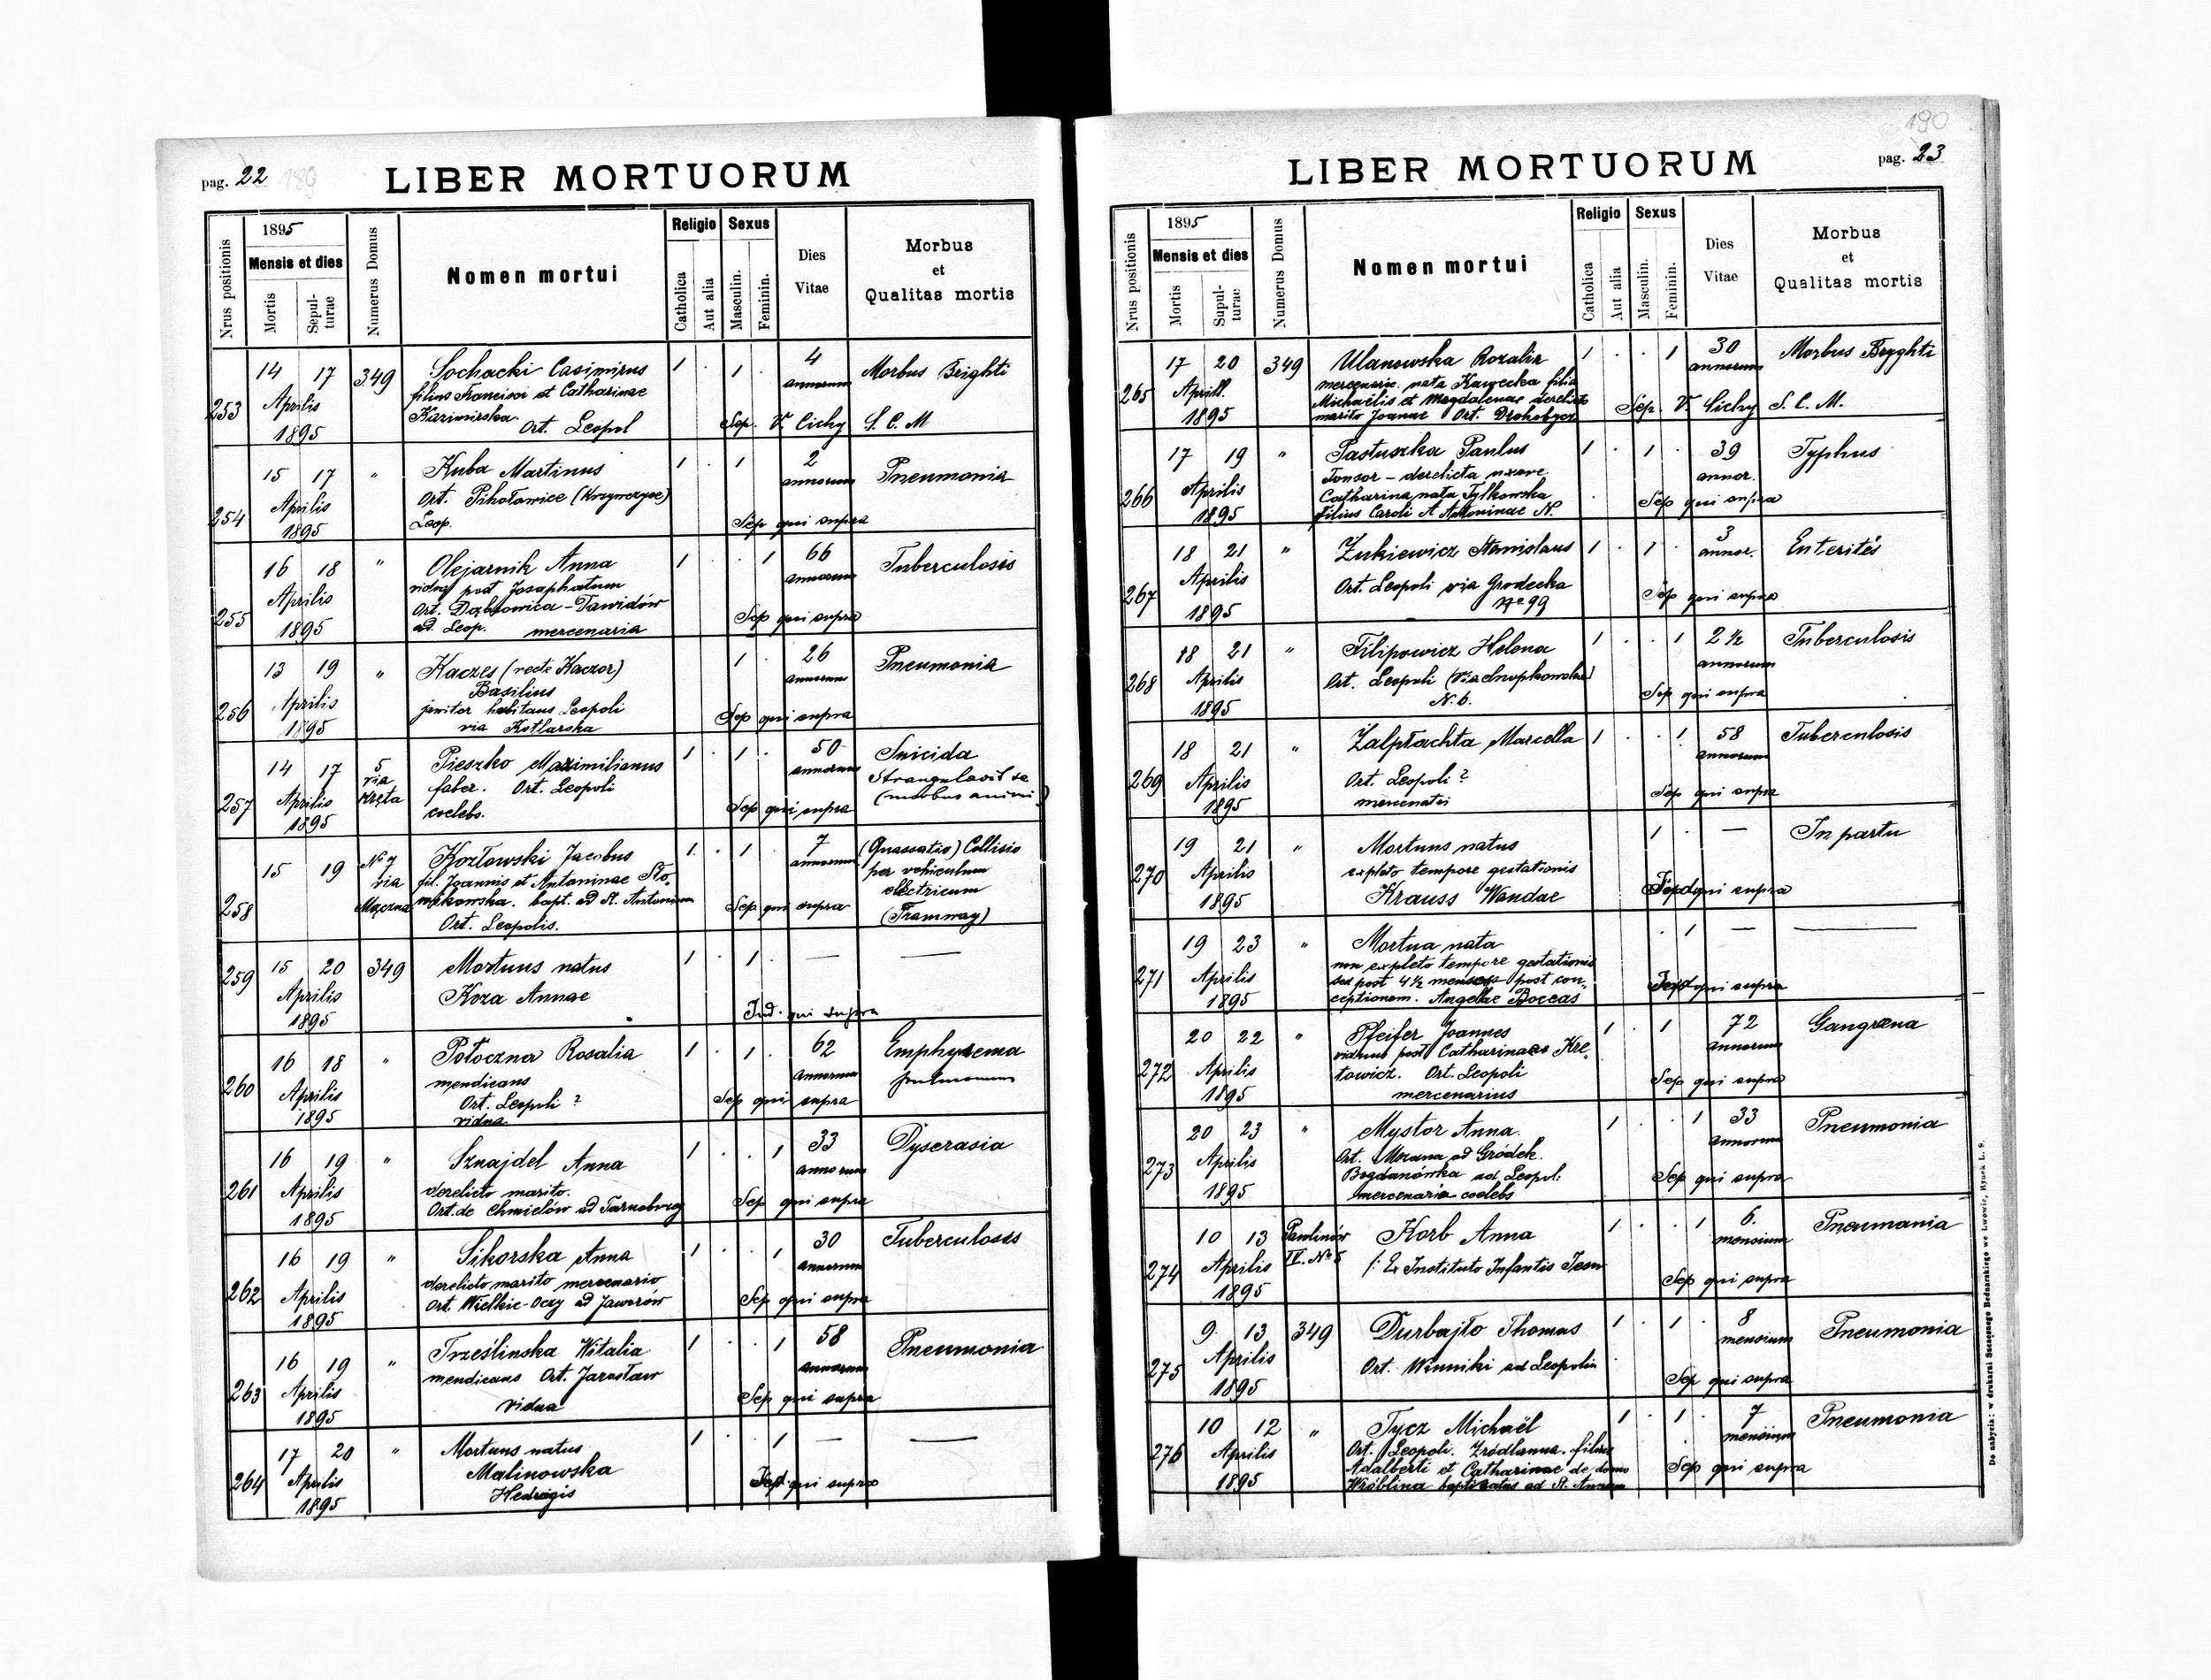 pag. 22 189
LIBER MORTUORUM
Nrus positionis
1895
Mensis et dies
Mortis
Sepulturae
Numerus Domus
Nomen mortui
Religio
Catholica
Aut alia
Sexus
Masculin.
Feminin.
Dies
Vitae
Morbus
et
Qualitas mortis
253 14 17 Aprilis 1895 349
Sochacki Casimirus
filius Francisci et Catharinae
Kazimirska
Ort. Leopol
1 . 1 . 4 annorum Morbus Brighti
Sep. V. Cichy S. C. M
254 15 17 Aprilis 1895 "
Kuba Martinus
Ort. Pikołowice (Krzywczyce)
Leop.
1 . 1 2 annorum Pneumonia
Sep qui supra
255 16 18 Aprilis 1895 "
Olejarnik Anna
vidua post Josaphatum
Ort. Dąbrowica - Dawidów
ad Leop. mercenaria
1 . . 1 66 annorum Tuberculosis
Sep qui supra
256 13 19 Aprilis 1895 "
Kaczes (recte Kaczor)
Basilius
janitor habitans Leopoli
via Kotlarska
1 . 26 annorum Pneumonia
Sep qui supra
257 14 17 Aprilis 1895 5 via Kręta
Pieszko Maximilianus
faber. Ort. Leopoli
coelebs.
1 . 1 . 50 annorum Suicida
Strangulavit se
(morbus animi)
Sep qui supra
258 15 19 No 7 via Mączna
Kozłowski Jacobus
fil. Joannis et Antoninae Sło-
wikowska. bapt. ad St. Antonium
Ort. Leopolis.
1. . 1 . 7 annorum (Quassatio) Collisio
per vehiculum
electricum
(Tramway)
Sep qui supra
259 15 20 Aprilis 1895 349
Mortuus natus
Koza Annae
1 . 1 . — —
Ind. qui supra
260 16 18 Aprilis 1895 "
Potoczna Rosalia
mendicans
Ort. Leopoli ?
vidua
1 . 1 . 62 annorum Emphysema
pulmonum
Sep qui supra
261 16 19 Aprilis 1895 "
Sznajdel Anna
derelicto marito.
Ort. de Chmielów ad Tarnobrzeg
1 . . 1 33 annorum Dyscrasia
Sep qui supra
262 16 19 Aprilis 1895 "
Sikorska Anna
derelicto marito mercenario
Ort. Wielkie-Oczy ad Jaworów
1 . . 1 30 annorum Tuberculosis
Sep qui supra
263 16 19 Aprilis 1895 "
Trześlinska Witalia
mendicans Ort. Jarosław
vidua
1 . . 1 58 annorum Pneumonia
Sep qui supra
264 17 20 Aprilis 1895 "
Mortuus natus
Malinowska
Hedvigis
1 . 1 — —
qui supra
190
pag. 23
LIBER MORTUORUM
Nrus positionis
1895
Mensis et dies
Mortis
Supulturae
Numerus Domus
Nomen mortui
Religio
Catholica
Aut alia
Sexus
Masculin.
Feminin.
Dies
Vitae
Morbus
et
Qualitas mortis
265 17 20 Aprill. 1895 349
Ulanowska Rozalia
mercenaria. nata Kawecka filia
Michaëlis et Magdalenae derelicto
marito Joanne Ort. Drohobycz
1 . . 1 30 annorum Morbus Bryghti
Sep. V. Cichy S. C. M.
266 17 19 Aprilis 1895 "
Pastuszka Paulus
Tonsor - derelicta uxore
Catharina nata Tylkowska
filius Caroli A Antoninae N.
1 . 1 . 39 annor. Typhus
Sep qui supra
267 18 21 Aprilis 1895 "
Żukiewicz Stanislaus
Ort. Leopoli via Grodecka
No 99
1 . 1 . 3 annor. Enteritis
Sep qui supra
268 18 21 Aprilis 1895 "
Filipowicz Helena
Ort. Leopoli (Via Snopkowska)
N. 6.
1 . . 1 2 ½ annorum Tuberculosis
Sep qui supra
269 18 21 Aprilis 1895 "
Zalpłachta Marcella
Ort. Leopoli ?
1 . . 1 58 annorum Tuberculosis
Sep qui supra
270 19 21 Aprilis 1895 "
Mortuus natus
expleto tempore gestationis
Krauss Wandae
1 . — In partu
qui supra
271 19 23 Aprilis 1895 "
Mortua nata
non expleto tempore gestationis
sed post 4½ menses post con-
ceptionem. Angelae Boccas
. 1 — —
qui supra
272 20 22 Aprilis 1895 "
Pfeifer Joannes
viduus post Catharinam Kre-
towicz. Ort. Leopoli
mercenarius
1 . 1 72 annorum Gangraena
Sep qui supra
273 20 23 Aprilis 1895 "
Mystor Anna.
Ort. Mszana ad Gródek.
Bogdanówka ad Leopol.
mercenaria coelebs
1 . . 1 33 annorum Pneumonia
Sep qui supra
274 10 13 Aprilis 1895 Paulinów IV. No 5
Korb Anna
/: Ex Instituto Infantis Jesu
1 . . 1 6. mensium Pneumania
Sep qui supra
275 9. 13 Aprilis 1895 349
Durbajło Thomas
Ort. Winniki ad Leopolim
1 . 1 . 8 mensium Pneumonia
Sep qui supra
276 10 12 Aprilis 1895 "
Tycz Michaël
Ort. Leopoli. Zródlanna. filius
Adalberti et Catharinae de domo
Wróblina baptisatus ad St. Annam
1 . 1 . 7 mensium Pneumonia
Sep qui supra
Do nabycia: w drukarni Szczęsnego Bednarskiego we Lwowie, Rynek L. 9.